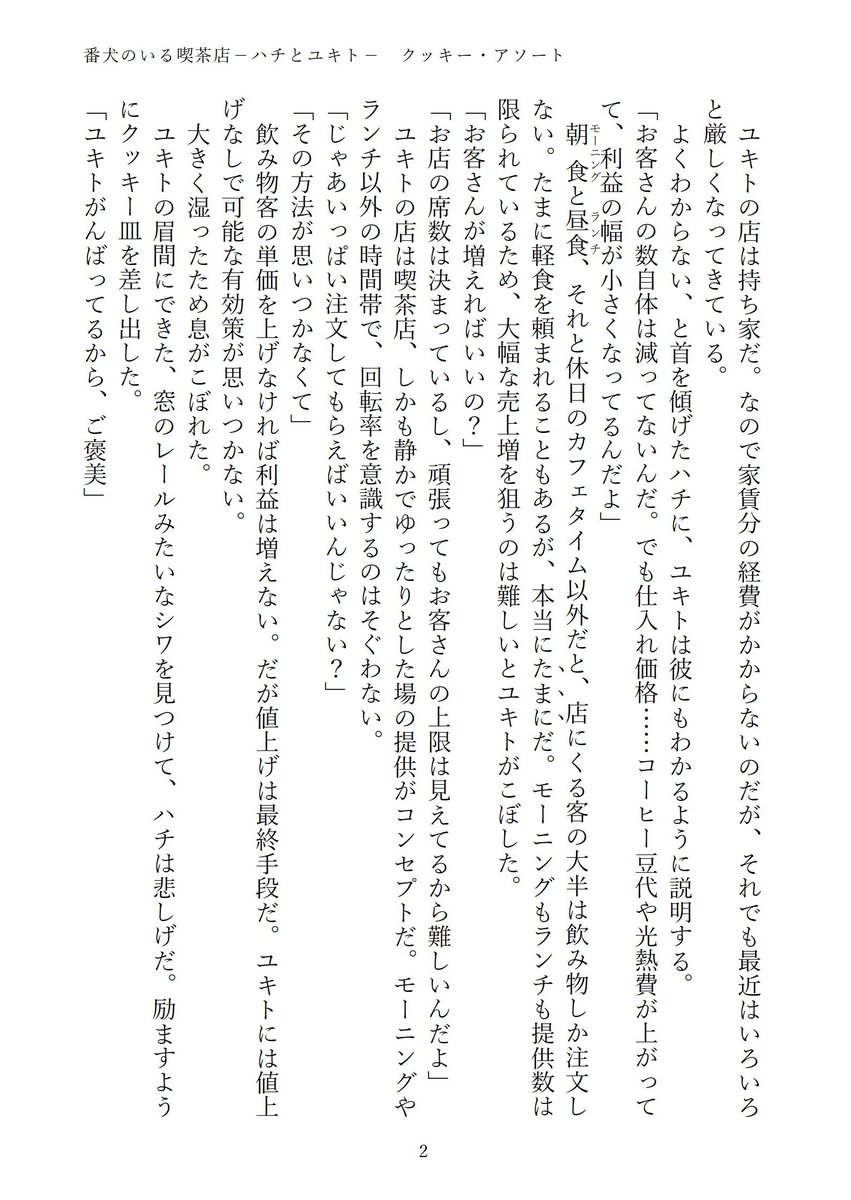 番犬のいる喫茶店－ハチとユキト－　クッキー・アソート
　ユキトの店は持ち家だ。なので家賃分の経費がかからないのだが、それでも最近はいろいろ
と厳しくなってきている。
　よくわからない、と首を傾げたハチに、ユキトは彼にもわかるように説明する。
「お客さんの数自体は減ってないんだ。でも仕入れ価格……コーヒー豆代や光熱費が上がって
て、利益の幅が小さくなってるんだよ」
　朝食と昼食、それと休日のカフェタイム以外だと、店にくる客の大半は飲み物しか注文し
モーニング　ランチ
ない。たまに軽食を頼まれることもあるが、本当にたまにだ。モーニングもランチも提供数は
限られているため、大幅な売上増を狙うのは難しいとユキトがこぼした。
「お客さんが増えればいいの？」
「お店の席数は決まっているし、頑張ってもお客さんの上限は見えてるから難しいんだよ」
　ユキトの店は喫茶店、しかも静かでゆったりとした場の提供がコンセプトだ。モーニングや
ランチ以外の時間帯で、回転率を意識するのはそぐわない。
「じゃあいっぱい注文してもらえばいいんじゃない？」
「その方法が思いつかなくて」
　飲み物客の単価を上げなければ利益は増えない。だが値上げは最終手段だ。ユキトには値上
げなしで可能な有効策が思いつかない。
　大きく湿ったため息がこぼれた。
　ユキトの眉間にできた、窓のレールみたいなシワを見つけて、ハチは悲しげだ。励ますよう
にクッキー皿を差し出した。
「ユキトがんばってるから、ご褒美」
2